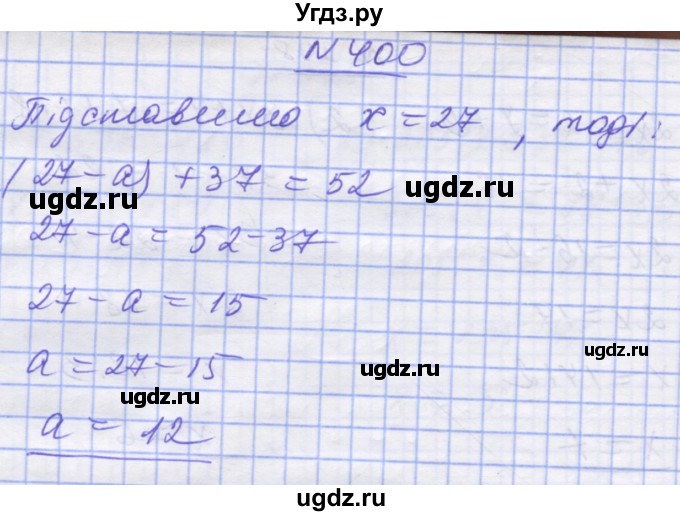 Угдз.ру
N 400
Підставимо x = 27, тоді:
(27 - a) + 37 = 52
ugdz.ru ugdz.ru
27 - a = 52 - 37
27 - a = 15
ugdz.ru
a = 27 - 15
ugdz.ru ugdz.ru
a = 12
ugdz.ru